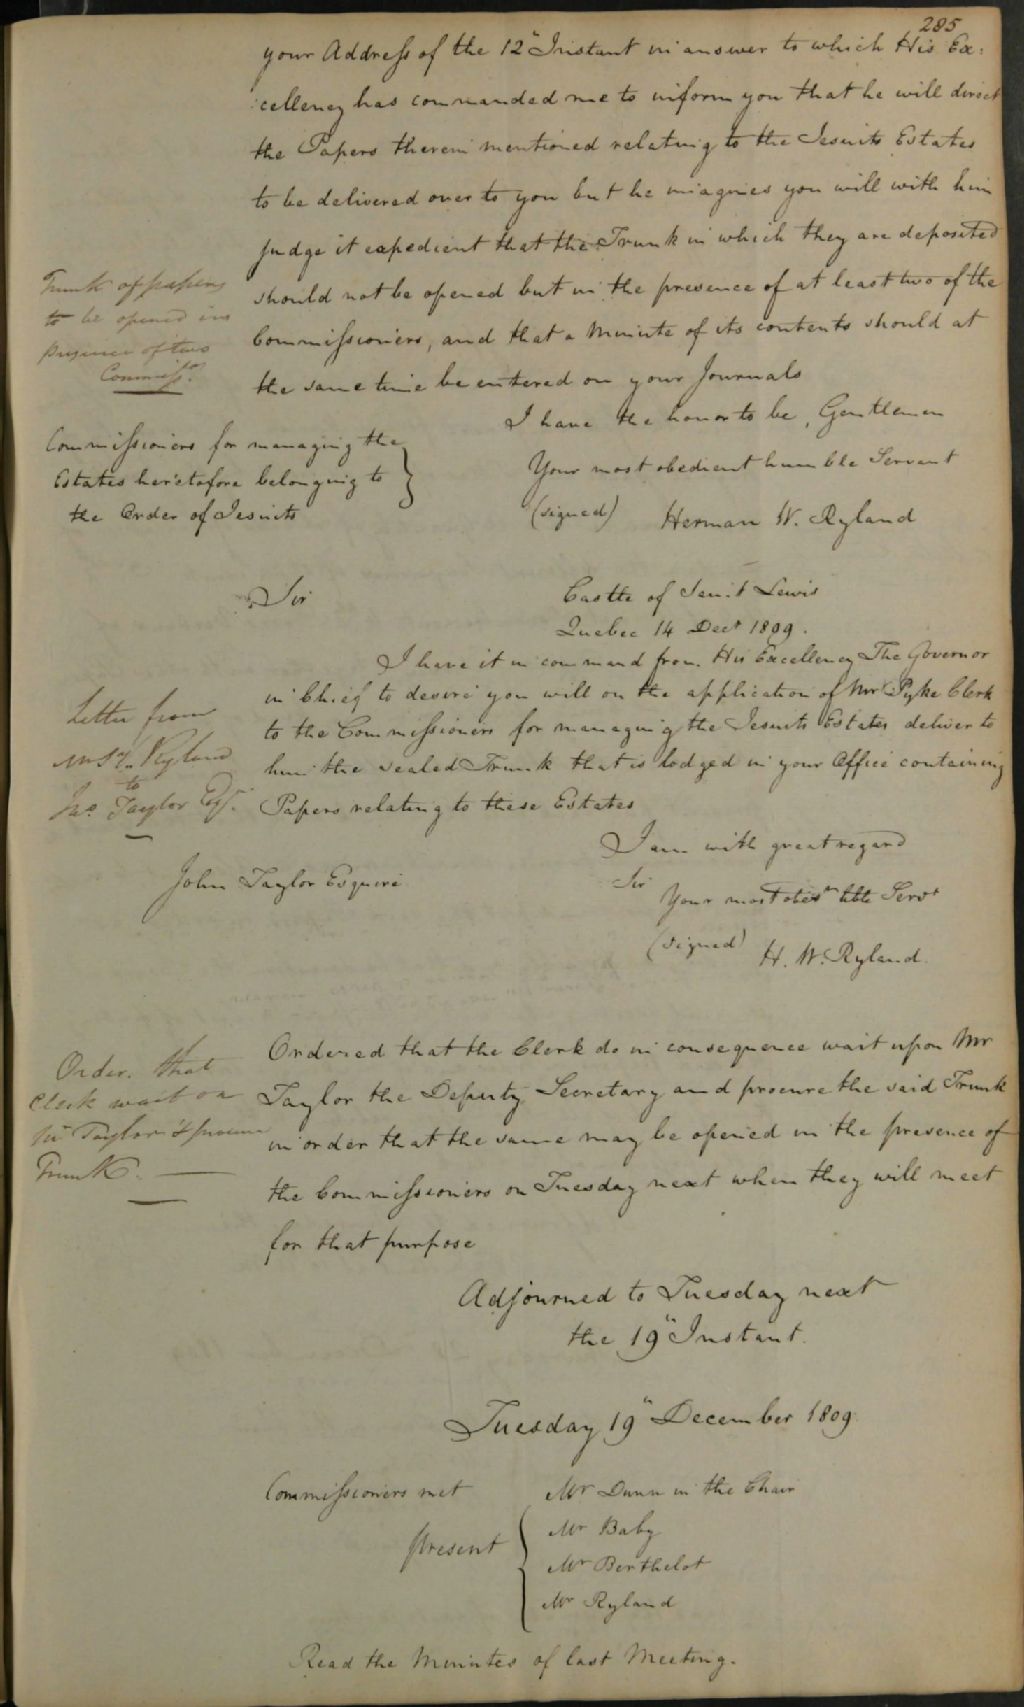 285
your Address of the 12" Instant in answer to which His Ex:
:cellency has commanded me to inform you that he will direct
the Papers therein mentioned relating to the Jesuits Estates
to be delivered over to you but he imagines you will with him
judge it expedient that the Trunk in which they are deposited
should not be opened but in the presence of at least two of the
Commissioners, and that a Minute of its contents should at
the same time be entered on your Journals
Trunk of papers
to be opened in
presence of two
Commissrs.
I have the honor to be, Gentlemen
Your most obedient humble Servant
(signed) Herman W. Ryland
Commissioners for managing the
Estates heretofore belonging to
the Order of Jesuits
Sir
Castle of Saint Lewis
Quebec 14 Decr 1809.
I have it in command from His Excellency The Governor
in Chief to desire you will on the application of Mr Pyke Clerk
to the Commissioners for managing the Jesuits Estates deliver to
him the sealed Trunk that is lodged in your Office containing
Papers relating to these Estates
Letter from
Mr Sy. Ryland
to
Jno. Taylor Esqr.
I am with great regard
Sir
Your most obedt hble Servt
(signed) H. W. Ryland.
John Taylor Esquire
Ordered that the Clerk do in consequence wait upon Mr
Taylor the Deputy Secretary and procure the said Trunk
in order that the same may be opened in the presence of
the Commissioners on Tuesday next when they will meet
for that purpose
Order. that
Clerk wait on
Mr Taylor & procure
Trunk.
Adjourned to Tuesday next
the 19" Instant.
Tuesday 19" December 1809
Commissioners met
Mr Dunn in the Chair
present
Mr Baby
Mr Berthelot
Mr Ryland
Read the Minutes of last Meeting.